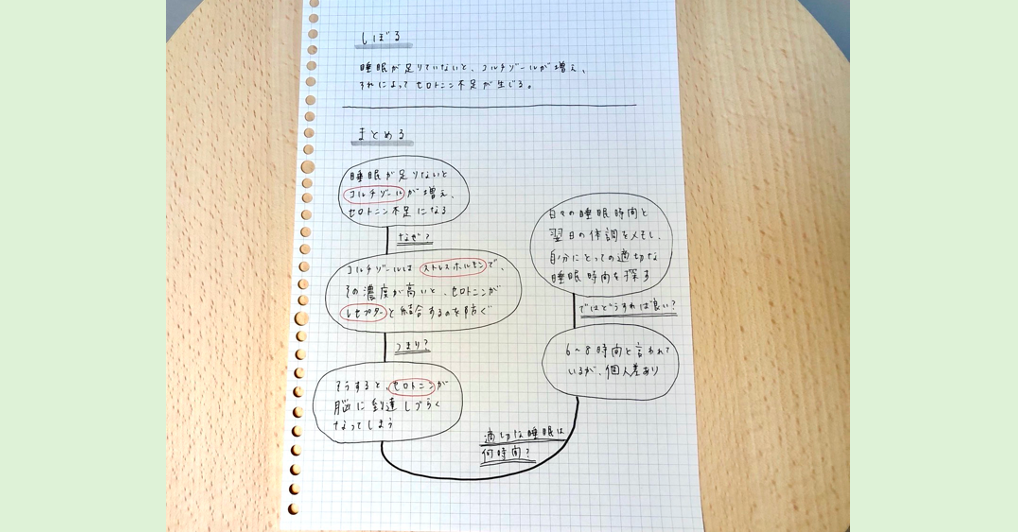 しぼる
睡眠が足りていないと、コルチゾールが増え、
それによってセロトニン不足が生じる。
まとめる
睡眠が足りないと
コルチゾールが増え、
セロトニン不足になる
なぜ?
コルチゾールはストレスホルモンで、
その濃度が高いと、セロトニンが
レセプターと結合するのを防ぐ
つまり?
そうすると、セロトニンが
脳に到達しづらく
なってしまう
適切な睡眠は
何時間?
6〜8時間と言われて
いるが、個人差あり
ではどうすれば良い?
日々の睡眠時間と
翌日の体調をメモし、
自分にとっての適切な
睡眠時間を探す